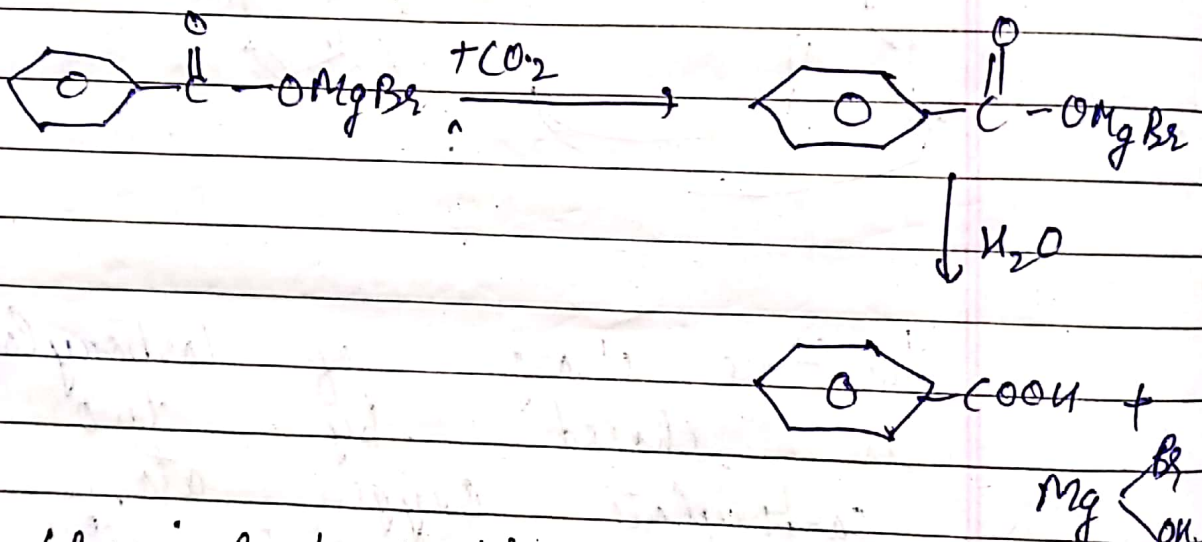 O O
C - OMgBr +CO2 → C - OMgBr
↓ H2O
COOH +
Mg Br
OH